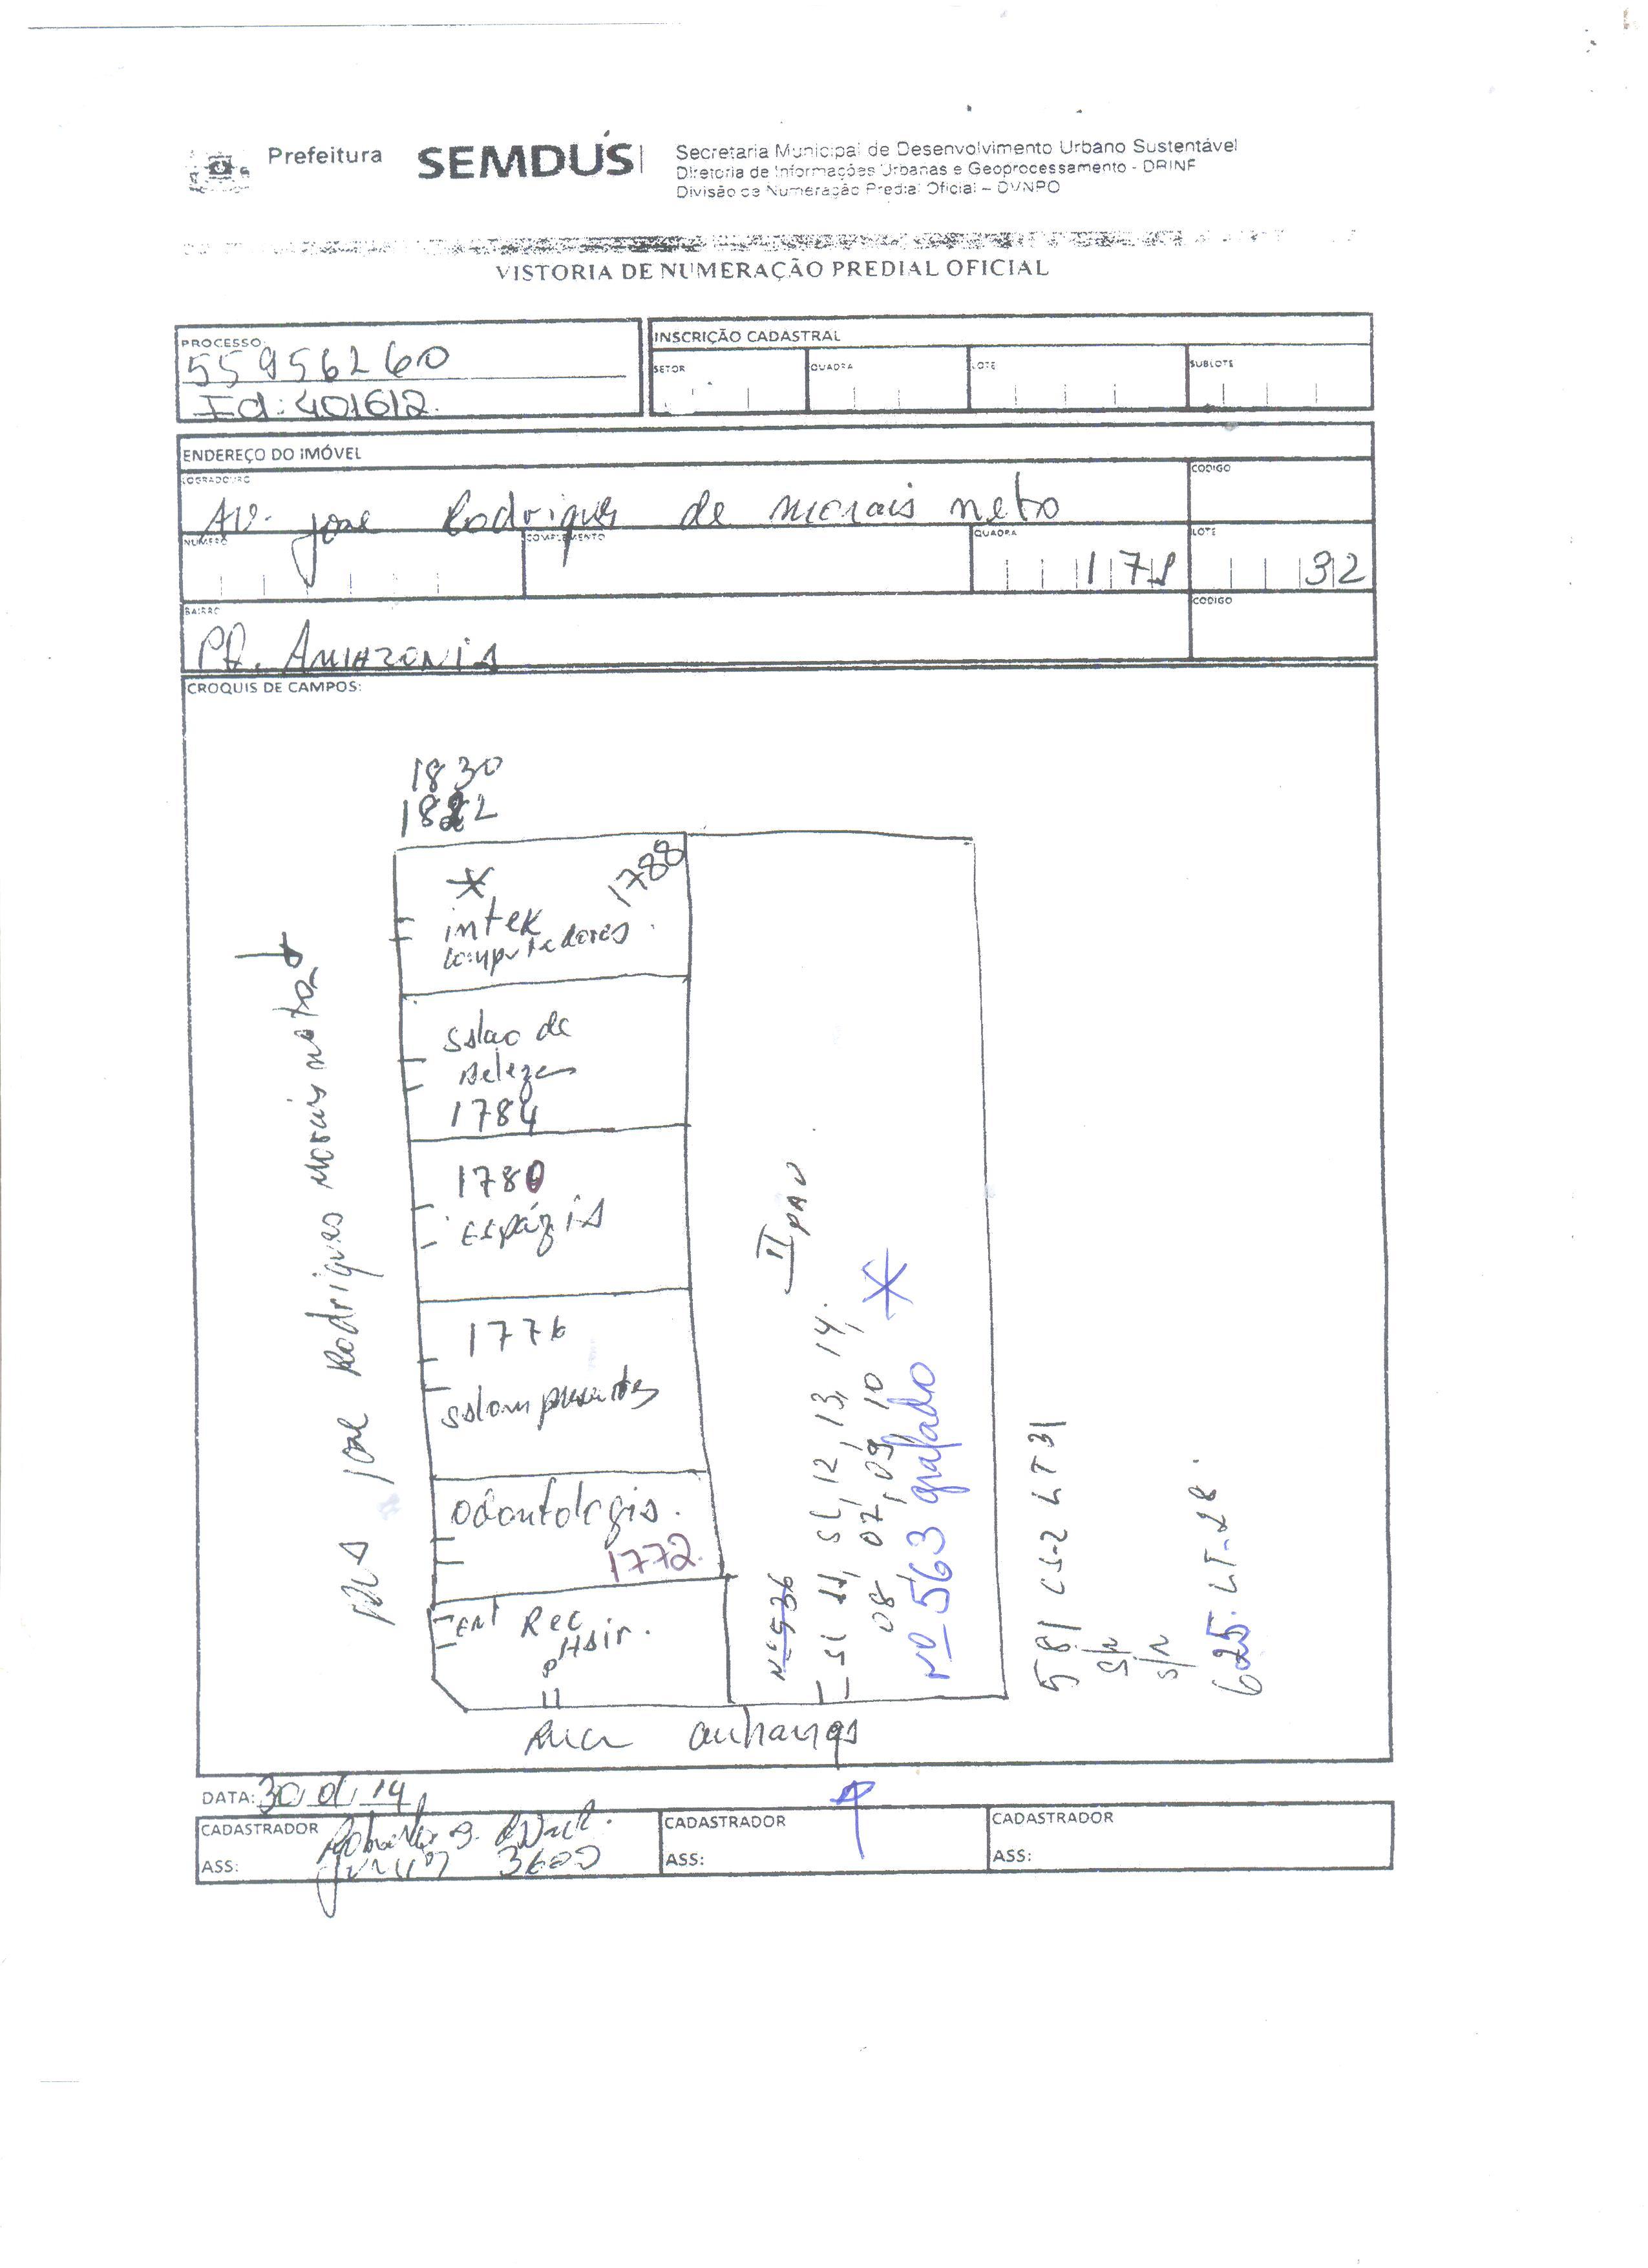 Prefeitura
SEMDUS
Secretaria Municipal de Desenvolvimento Urbano Sustentável
Diretoria de Informações Urbanas e Geoprocessamento - DRINF
Divisão de Numeração Predial Oficial – DVNPO
VISTORIA DE NUMERAÇÃO PREDIAL OFICIAL
PROCESSO:
55956260
Id: 401612.
INSCRIÇÃO CADASTRAL
SETOR
QUADRA
LOTE
SUBLOTE
ENDEREÇO DO IMÓVEL
LOGRADOURO
AV. José Rodrigues de morais neto
CODIGO
NUMERO
COMPLEMENTO
QUADRA
171
LOTE
32
BAIRRO
PQ. AMAZONIA
CODIGO
CROQUIS DE CAMPOS:
1830
1822
1788
intek
computadores
salao de
beleza
1784
1780
1776
odontologia.
1772.
ENT Rec
Rua anhanga
José Rodrigues Morais neto
II PAV
Nº 536
SL 11, SL, 12, 13, 14,
08- 07, 09, 10
Nº 563 grafado
581 CS-2 LT 31
S/N
S/N
625. LT-28.
DATA: 30 01 14
CADASTRADOR
ASS:
3600
CADASTRADOR
ASS:
CADASTRADOR
ASS: